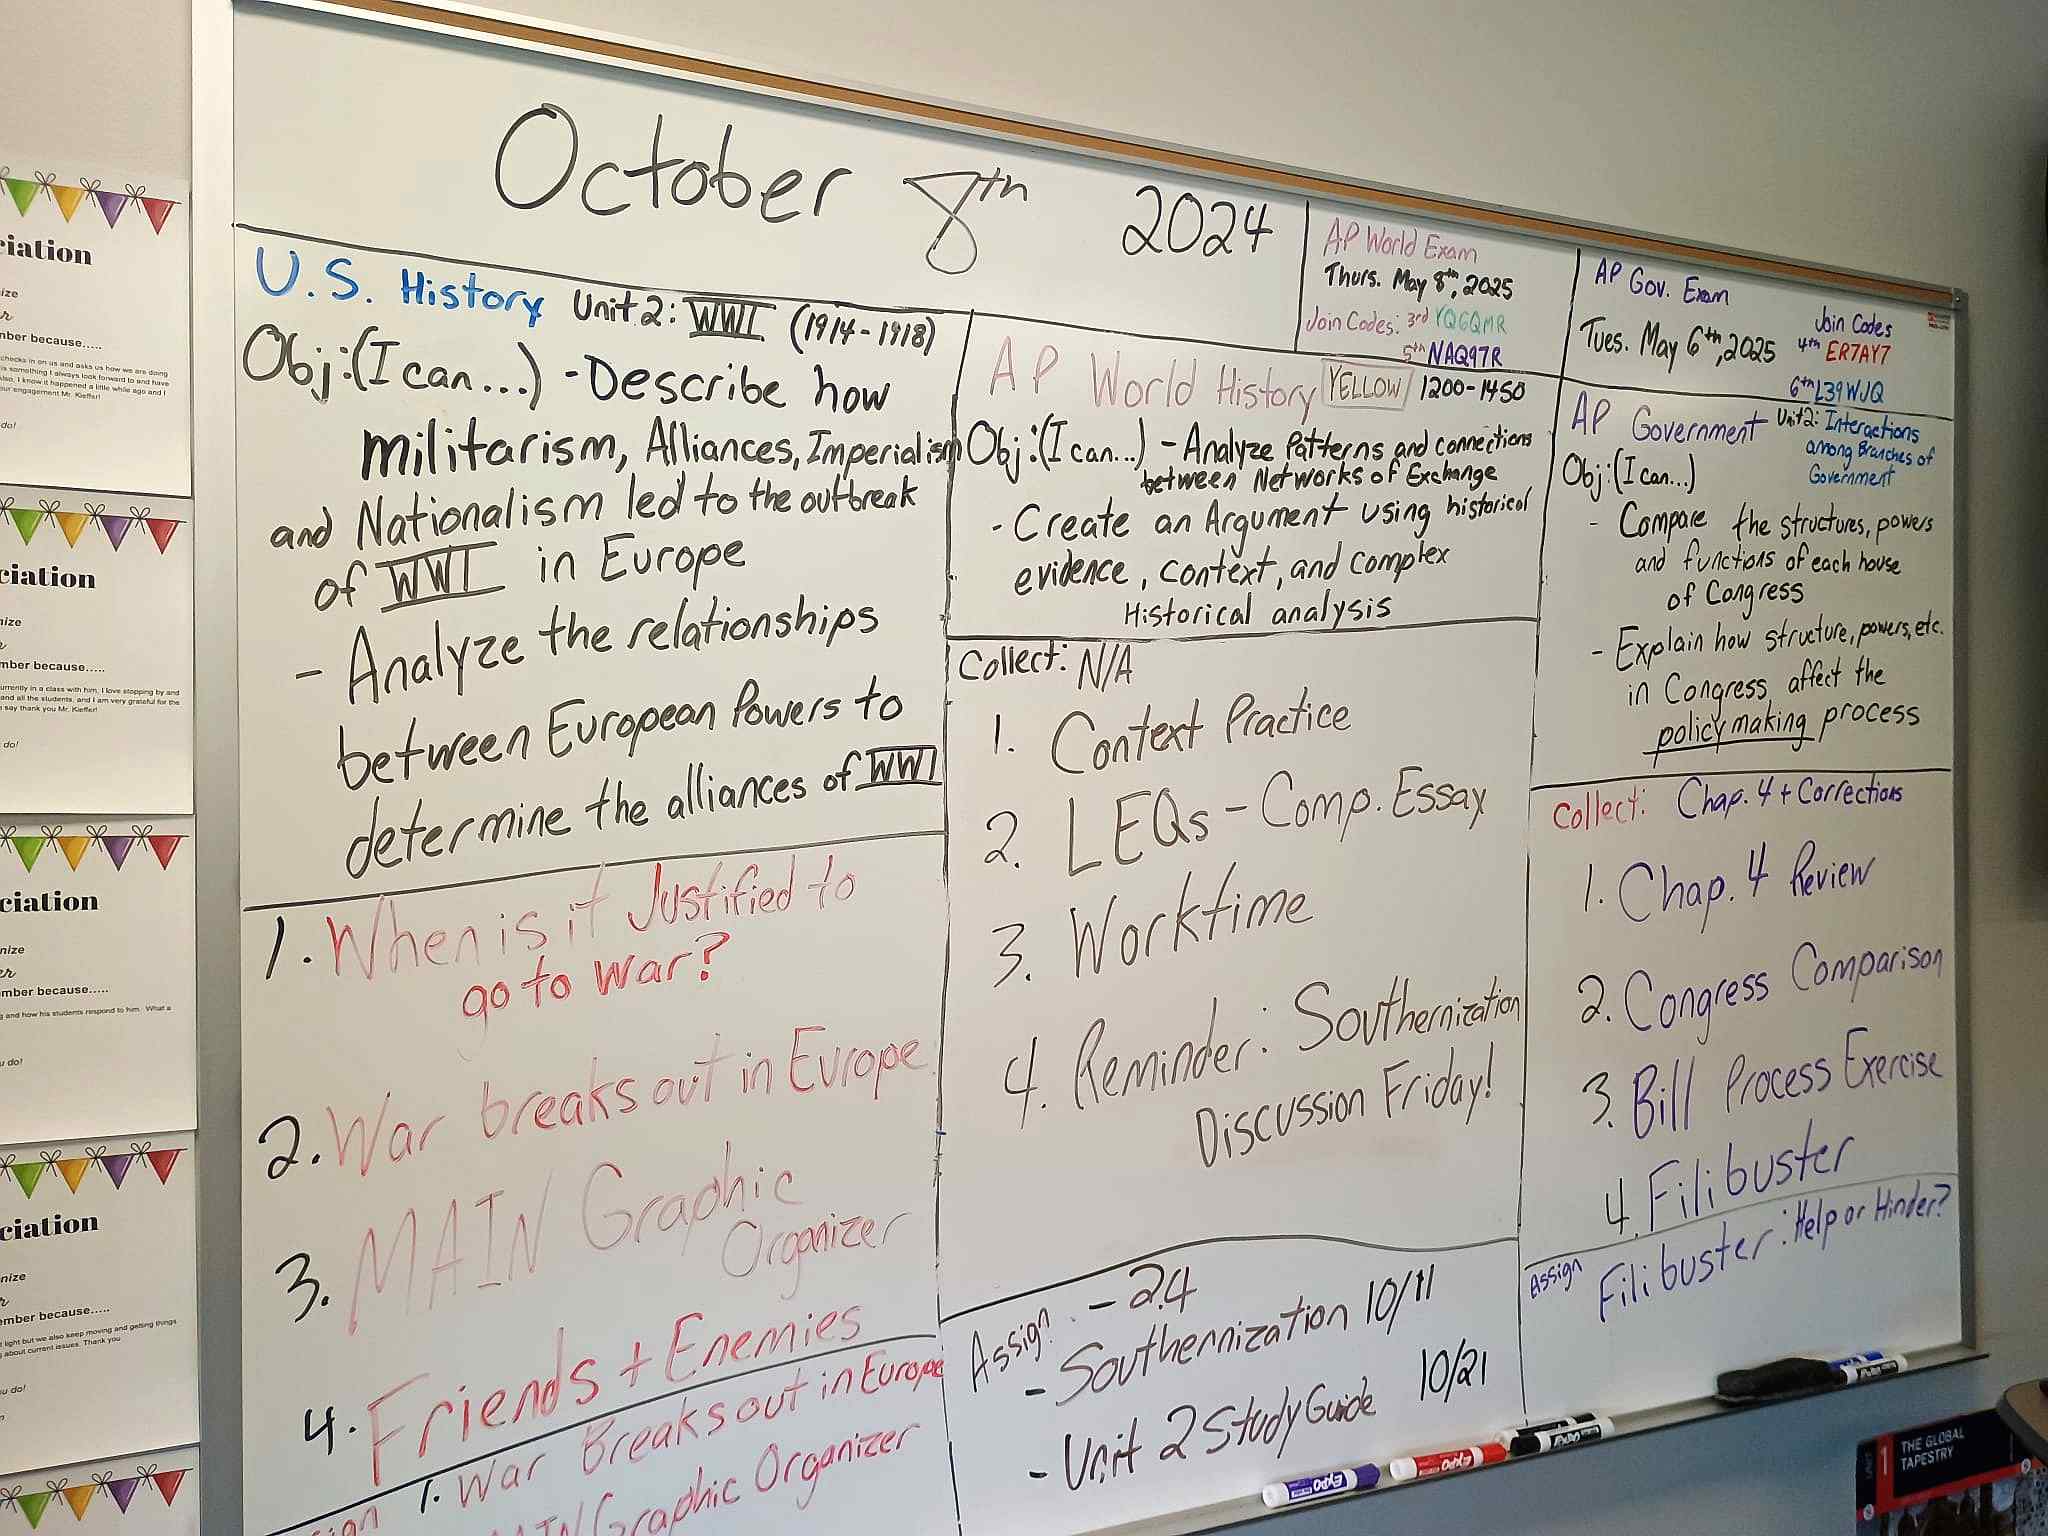 October 8th 2024
AP World Exam
Thurs. May 8th, 2025
Join Codes: 3rd YQGQMR
5th NAQ97R
AP Gov. Exam
Tues. May 6th, 2025
Join Codes
4th ER7AY7
6th L39WJQ
U.S. History Unit 2: WWI (1914-1918)
Obj:(I can...) - Describe how
militarism, Alliances, Imperialism
and Nationalism led to the outbreak
of WWI in Europe
- Analyze the relationships
between European Powers to
determine the alliances of WWI
1. When is it Justified to
go to war?
2. War breaks out in Europe
3. MAIN Graphic
Organizer
4. Friends + Enemies
1. War Breaks out in Europe
MAIN Graphic Organizer
AP World History YELLOW 1200-1450
Obj:(I can...) - Analyze Patterns and connections
between Networks of Exchange
- Create an Argument using historical
evidence, context, and complex
Historical analysis
Collect: N/A
1. Context Practice
2. LEQs - Comp. Essay
3. Worktime
4. Reminder: Southernization
Discussion Friday!
Assign: - 2.4
- Southernization 10/11
- Unit 2 Study Guide 10/21
AP Government Unit 2: Interactions
among Branches of
Government
Obj:(I can...)
- Compare the structures, powers
and functions of each house
of Congress
- Explain how structure, powers, etc.
in Congress affect the
policymaking process
Collect: Chap. 4 + Corrections
1. Chap. 4 Review
2. Congress Comparison
3. Bill Process Exercise
4. Filibuster
Assign Filibuster: Help or Hinder?
ciation
ize
mber because.....
checks in on us and asks us how we are doing
is something I always look forward to and have
Also, I know it happened a little while ago and I
your engagement Mr. Kieffer!
do!
ciation
nize
mber because.....
urrently in a class with him, I love stopping by and
and all the students, and I am very grateful for the
say thank you Mr. Kieffer!
do!
ciation
nize
er
mber because.....
g and how his students respond to him. What a
u do!
ciation
nize
ember because.....
light but we also keep moving and getting things
about current issues. Thank you
u do!
EXPO
EXPO
EXPO
EXPO
UNIT 1
THE GLOBAL
TAPESTRY